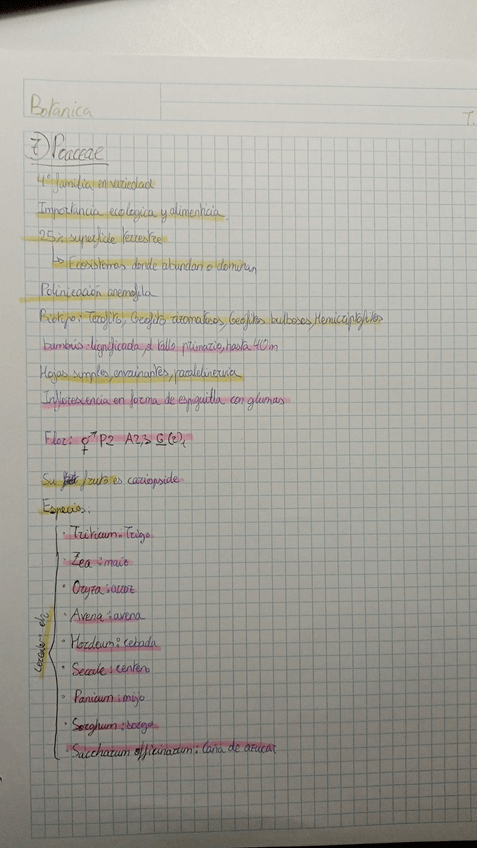 Botánica
T.
7) Poaceae
4º familia en variedad
Importancia ecologica y alimenticia.
25% superficie terrestre
↳ Ecosistemas donde abundan o dominan
Polinización anemofila
Biotipo: Terofito, Geofito rizomatosos, Geofitos bulbosos, Hemicriptofitos
bambús: lignificada, tallo primario, hasta 40m
Hojas simples, envainantes, paralelinervia
Inflorescencia en forma de espiguilla con glumas
Flor: ⚥ P2 A2,3 G(2)
Su fruto es cariopside
Especies:
· Triticum: Trigo
· Zea: maiz
· Oryza: arroz
· Avena: avena
· Hordeum: cebada
· Secale: centeno
· Panicum: mijo
· Sorghum: sorgo
Saccharum officinarum: Caña de azucar